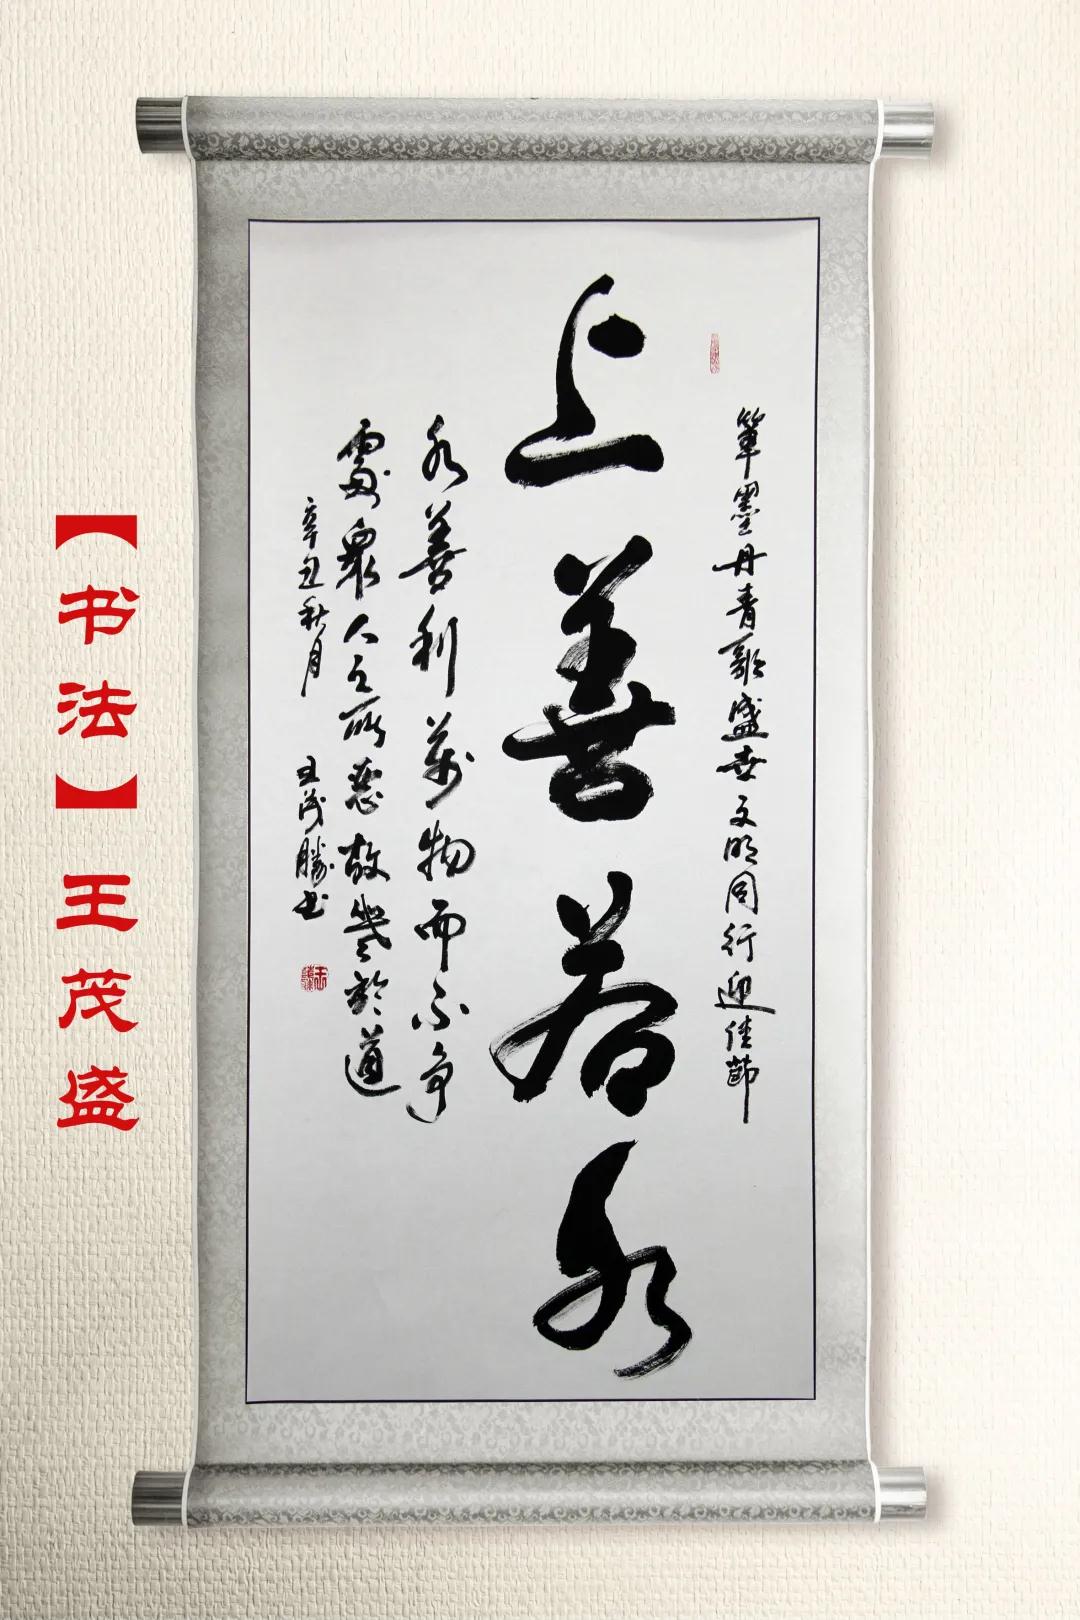 筆墨丹青歌盛世文明同行迎佳節
上善若水
水善利萬物而不争
處衆人之所惡故幾於道
辛丑秋月 王茂勝书
【书法】王茂盛